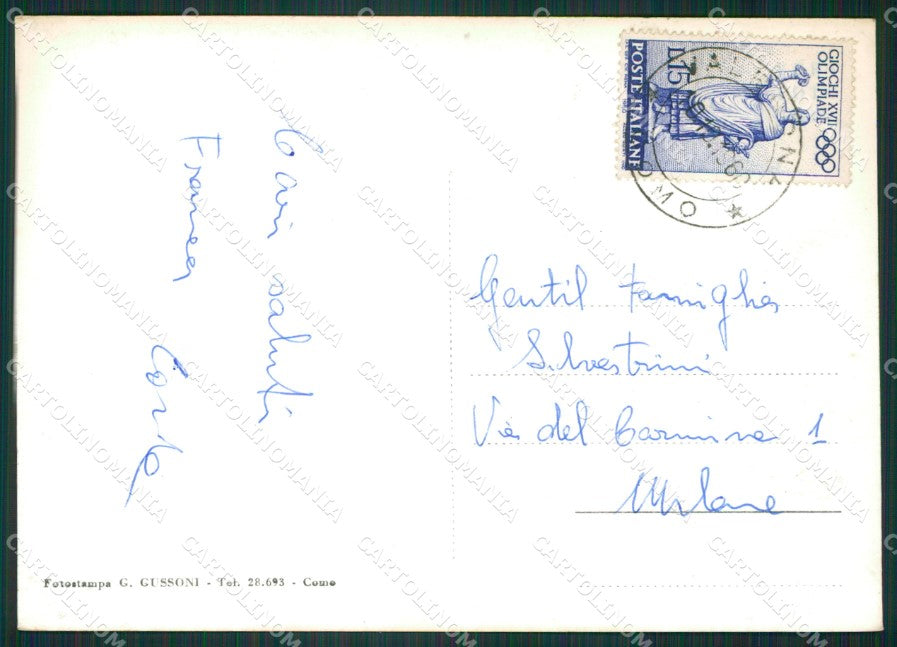 Cari saluti
Franca
GIOCHI XVII
OLIMPIADE
L.15
POSTE ITALIANE
COMO
Gentil Famiglia
Silvestrini
Via del Carmine 1
Milano
Fotostampa G. GUSSONI - Tel. 28.693 - Como
CARTOLINOMANIA